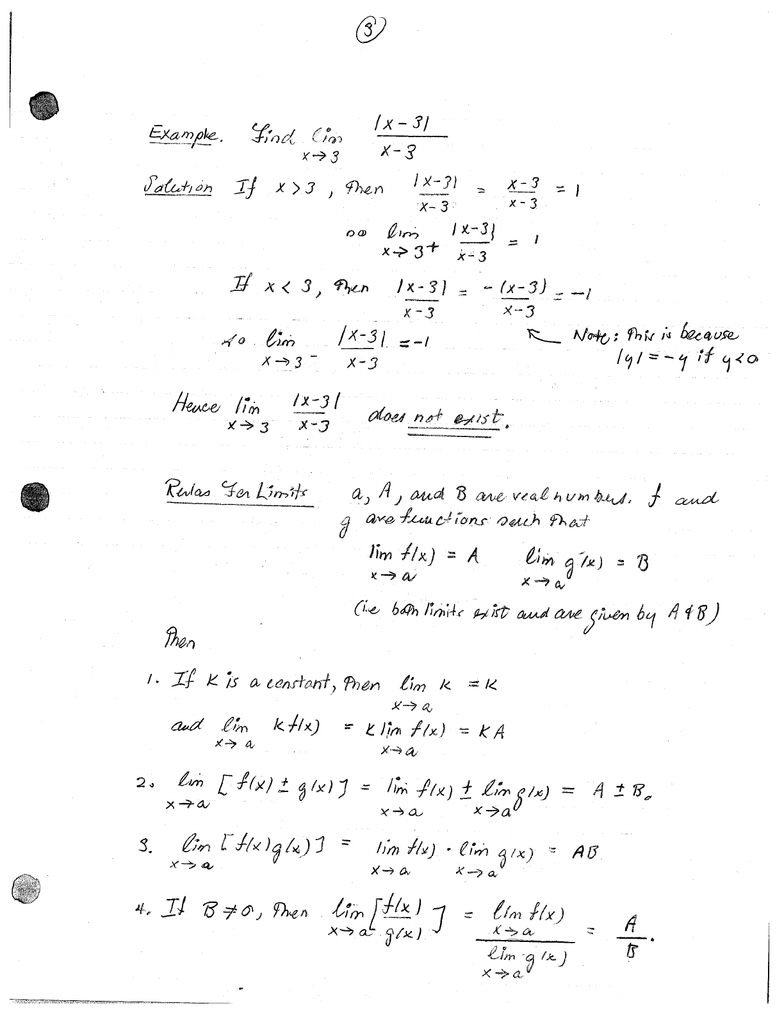 3
Example. Find lim x→3 |x-3| / x-3
Solution If x > 3, then |x-3| / x-3 = x-3 / x-3 = 1
so lim x→3+ |x-3| / x-3 = 1
If x < 3, then |x-3| / x-3 = -(x-3) / x-3 = -1
so lim x→3- |x-3| / x-3 = -1
Note: This is because
|y| = -y if y<0
Hence lim x→3 |x-3| / x-3 does not exist.
Rules For Limits a, A, and B are real numbers. f and
g are functions such that
lim x→a f(x) = A lim x→a g(x) = B
(i.e both limits exist and are given by A & B)
Then
1. If K is a constant, then lim x→a K = K
and lim x→a K f(x) = K lim x→a f(x) = KA
2. lim x→a [f(x) ± g(x)] = lim x→a f(x) ± lim x→a g(x) = A ± B.
3. lim x→a [f(x)g(x)] = lim x→a f(x) · lim x→a g(x) = AB
4. If B ≠ 0, then lim x→a [f(x) / g(x)] = lim x→a f(x) / lim x→a g(x) = A / B.